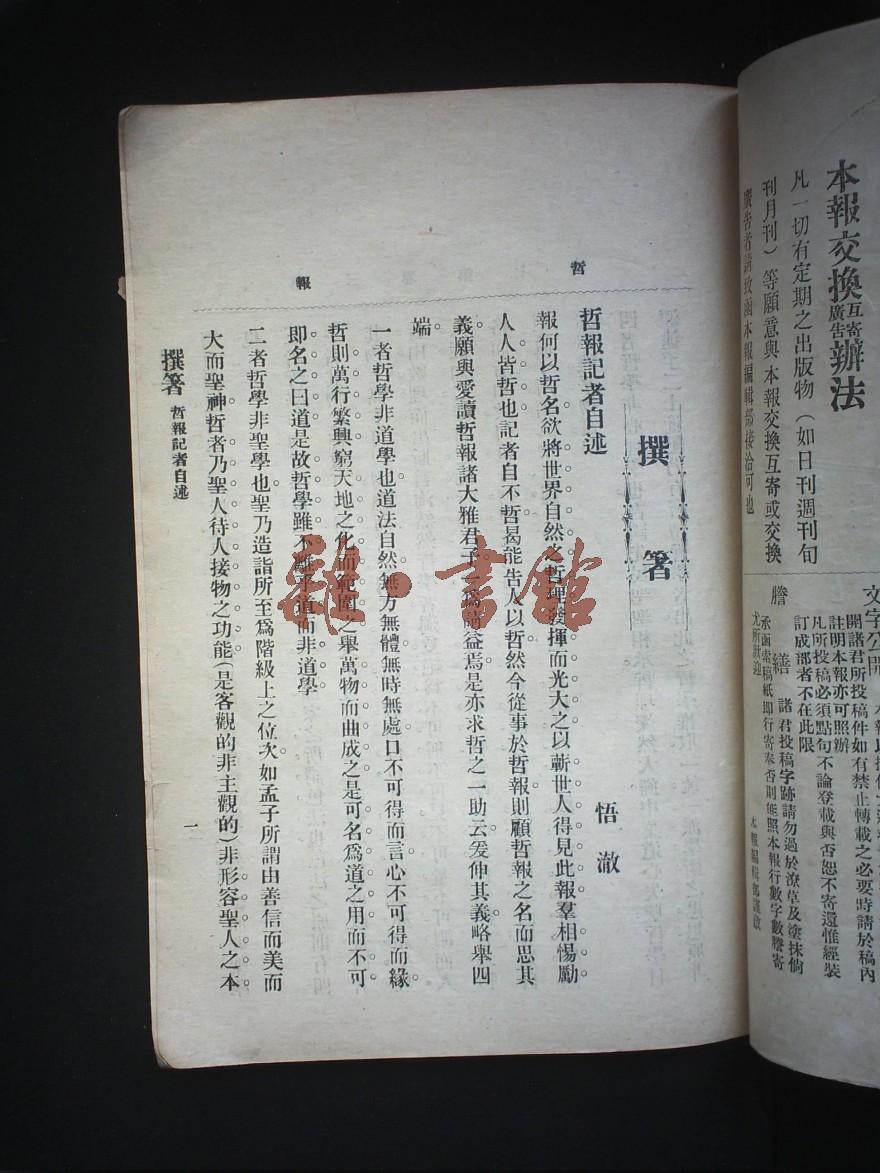 本報交換互寄廣告辦法
凡一切有定期之出版物(如日刊週刊旬
刊月刊)等願意與 本報交換互寄或交換
廣告者請致函本報編輯部接洽可也
文字公開
開諸君所投稿件如有禁止轉載之必要時請於稿內
註明本報亦可照辦
凡所投稿必須點句不論登載與否恕不寄還惟經裝
訂成部者不在此限
謄 繕 諸君投稿字跡請勿過於潦草及塗抹倘
承函索稿紙即行寄奉否則能照本報行數字數謄寄
尤所歡迎
本報編輯部謹啟
哲
報
撰 箸
哲報記者自述
悟 澈
報何以哲名欲將世界自然之哲理發揮而光大之以蘄世人得見此報羣相惕勵
人人皆哲也記者自不哲曷能告人以哲然今從事於哲報則顧哲報之名而思其
義願與愛讀哲報諸大雅君子之為益焉是亦求哲之一助云爰伸其義略舉四
端
一者哲學非道學也道法自然無方無體無時無處口不可得而言心不可得而緣
哲則萬行繁興窮天地之化而範圍之舉萬物而曲成之是可名為道之用而不可
即名之曰道是故哲學雖不離乎道而非道學
二者哲學非聖學也聖乃造詣所至為階級上之位次如孟子所謂由善信而美而
大而聖神哲者乃聖人待人接物之功能(是客觀的非主觀的)非形容聖人之本
撰箸 哲報記者自述
一
雜·書館